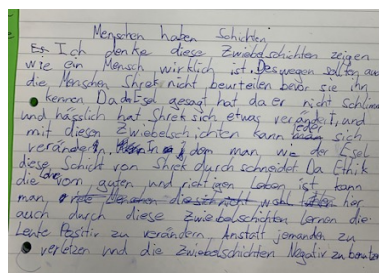 Menschen haben Schichten
Ich denke diese Zwiebelschichten zeigen
wie ein Mensch wirklich ist. Deswegen sollten auch
die Menschen Shrek nicht beurteilen bevor sie ihn
kennen Dadh Esel gesagt hat da er nicht schlimm
und hässlich hat Shrek sich etwas verändert, und
mit diesen Zwiebelschichten kann jeder sich
verändern. In dem man, wie der Esel
diese Schicht von Shrek durchschneidet. Da Ethik
die Lehre vom guten und richtigen Leben ist, kann
man, her
auch durch diese Zwiebelschichten lernen die
Leute Positiv zu verändern, Anstatt jemanden zu
verletzen und die Zwiebelschichten Negativ zu